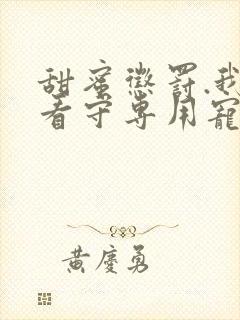 甜蜜懲罰.我
看守專用寵
黃慶勇